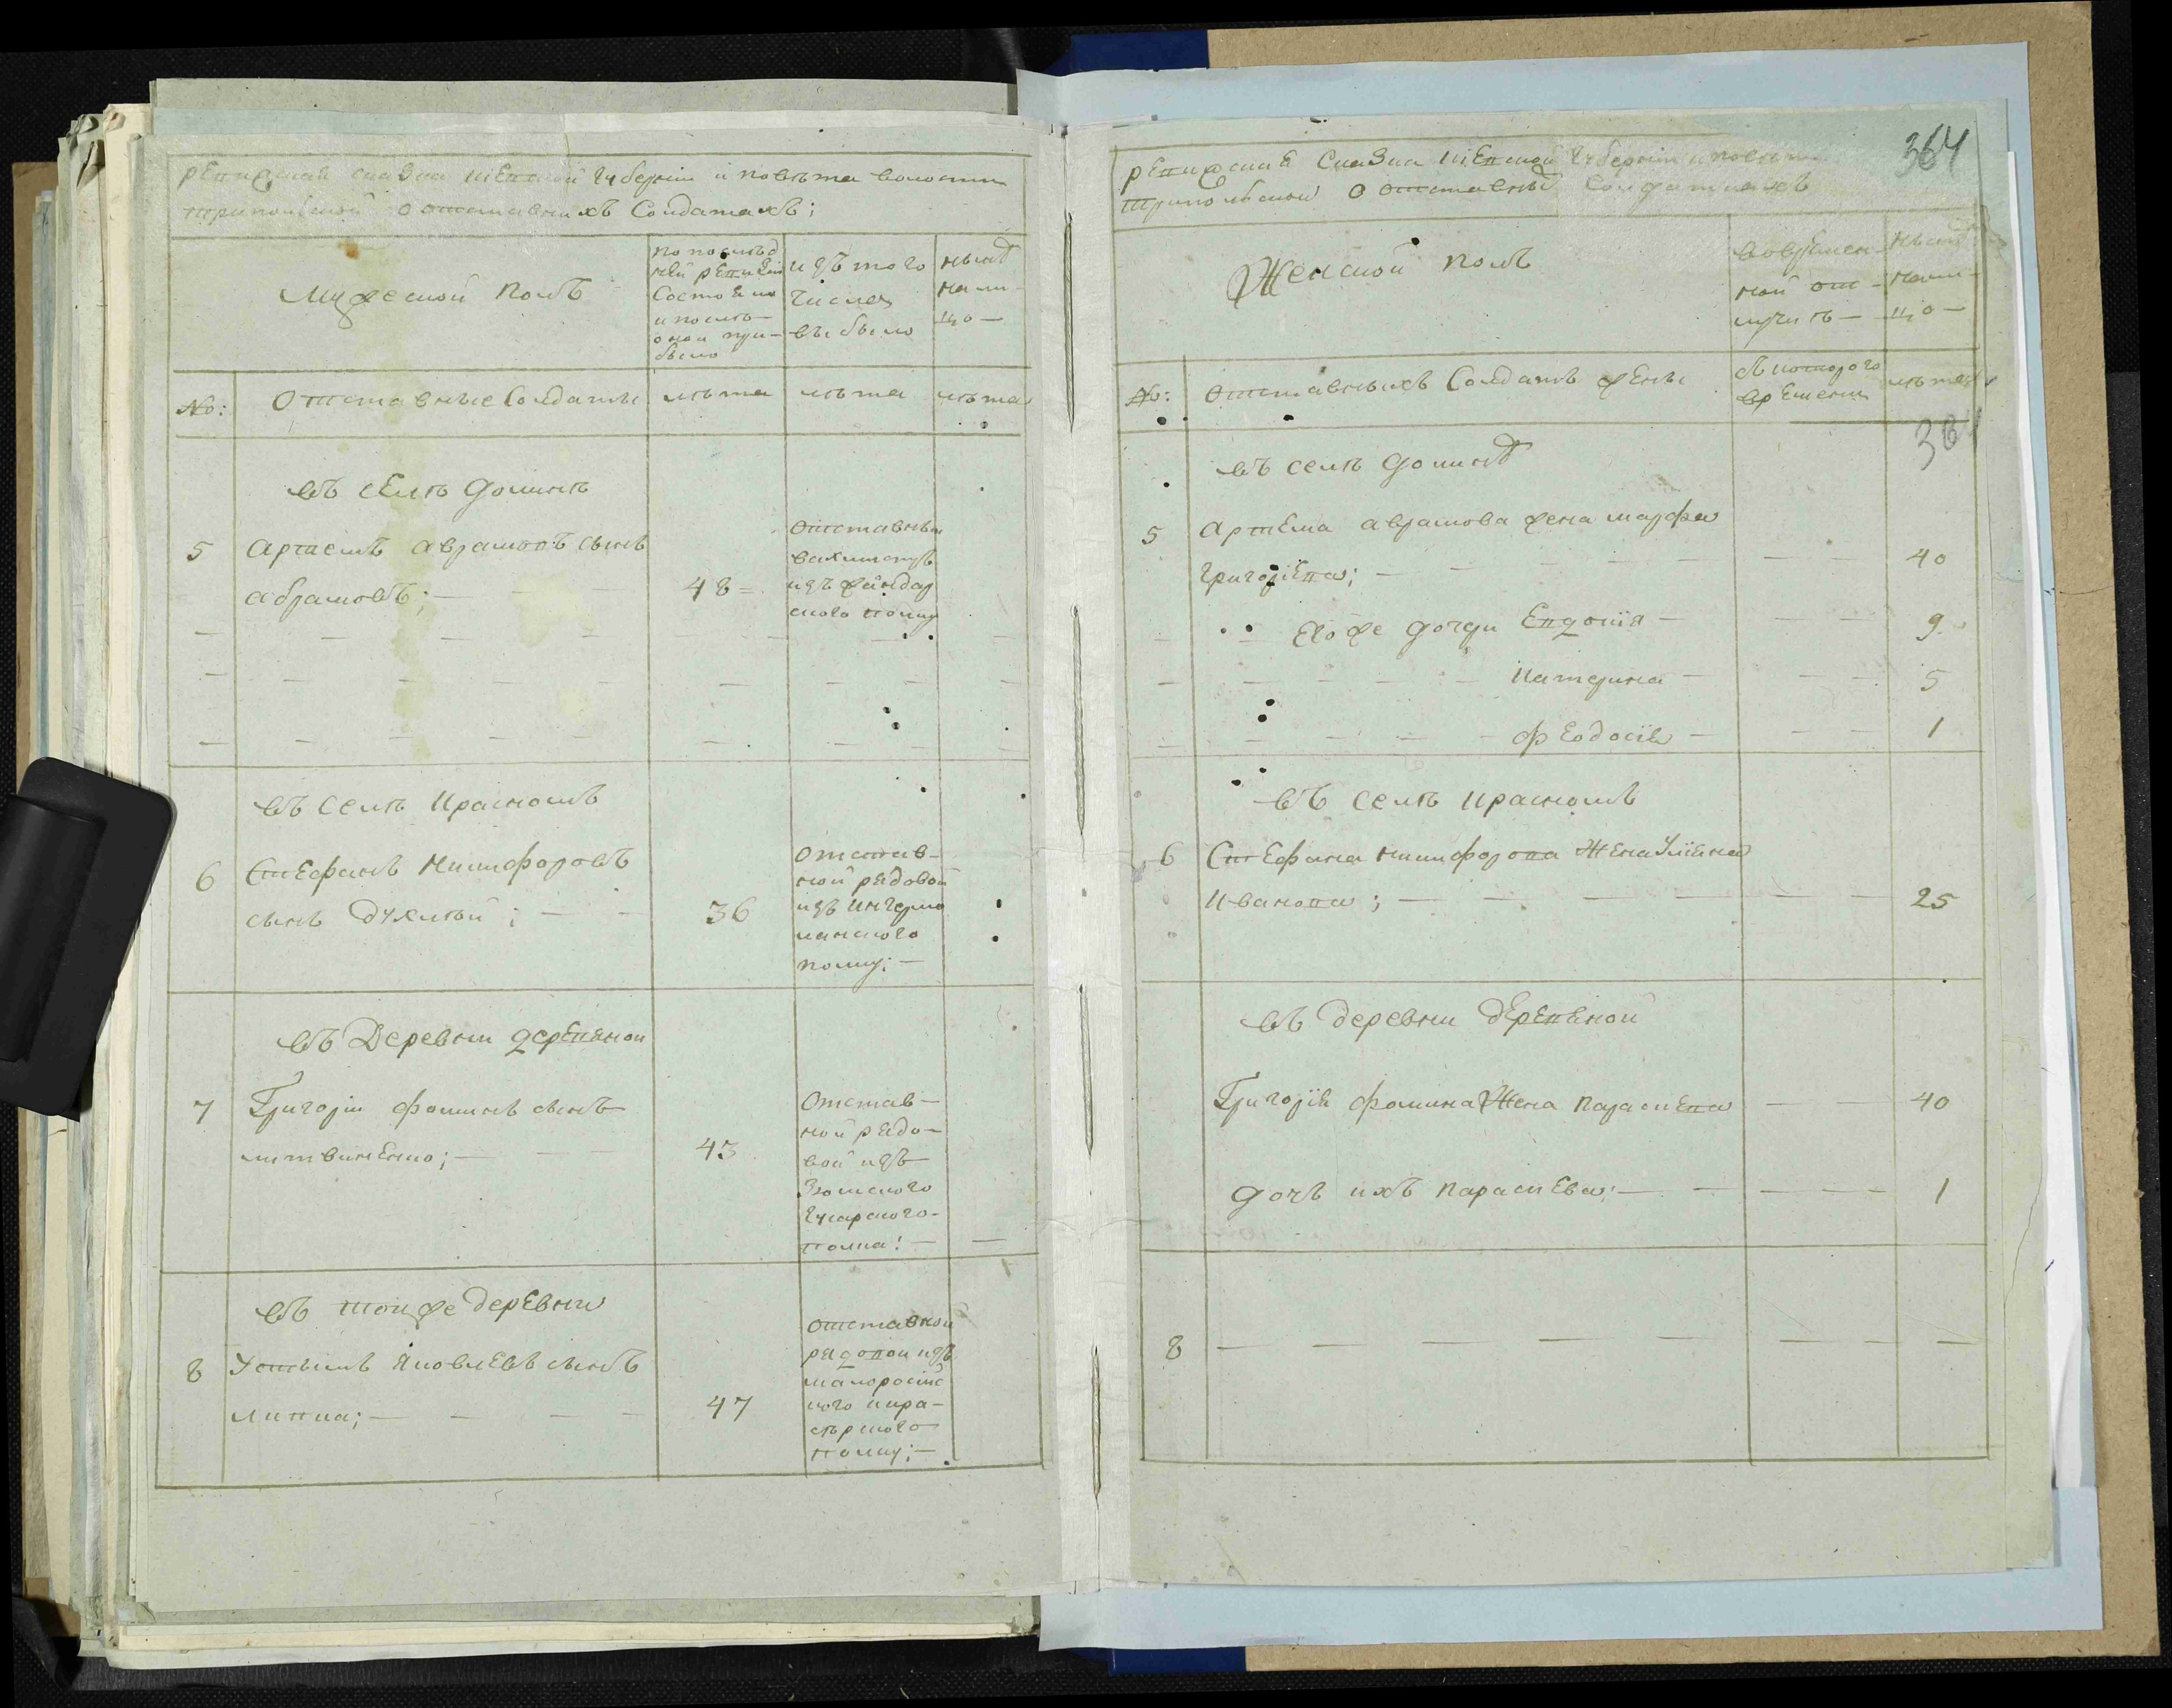 Ревизская сказка Киевской губернии и повета волости
Трипольской о отставныхъ Солдатахъ;
Мужеской полъ
по послед
ней ревизии
Состояло
и после
оной при-
было
изъ того
Числа
выбыло
ныне
нали-
цо
No:
Отставные Солдаты
лета
лета
лета
въ селе Долине
5
Артемъ Аврамовъ сынъ
Абрамовъ;
48
отставный
вахмистръ
изъ жандар
ского полку
въ селе Красномъ
6
Стефанъ Никифоровъ
сынъ
36
Отстав-
ной рядовой
изъ Ингермо
ланского
полку;
въ Деревни деревяной
7
Григорій Фоминъ сынъ
литвиненко;
43
Отстав-
ной рядо-
вой изъ
Гусарского
полка:
въ той же деревни
8
Устимъ Яковлевъ сынъ
липка;
47
отставной
рядовой изъ
малоросійс
кого кира-
сѣрского
полку;
364
Ревизская Сказка Киевской губернии и повета
Трипольской о отставных Солдаткахъ
Женской полъ
вовремен-
ной от-
лучкѣ
ныне
нали-
цо
No:
отставныхъ Солдатъ жены
съ которого
времени
лета
364
въ селѣ долинѣ
5
Артема аврамова жена марфа
Григорієва;
40
Его же дочери Евдокія
9
Катерина
5
Феодосія
1
въ селѣ Красномъ
6
Стефана Никифорова Жена Уліяна
Иванова;
25
въ деревни деревяной
Григорія Фомина Жена Параскева
40
дочь ихъ Параскева;
1
8